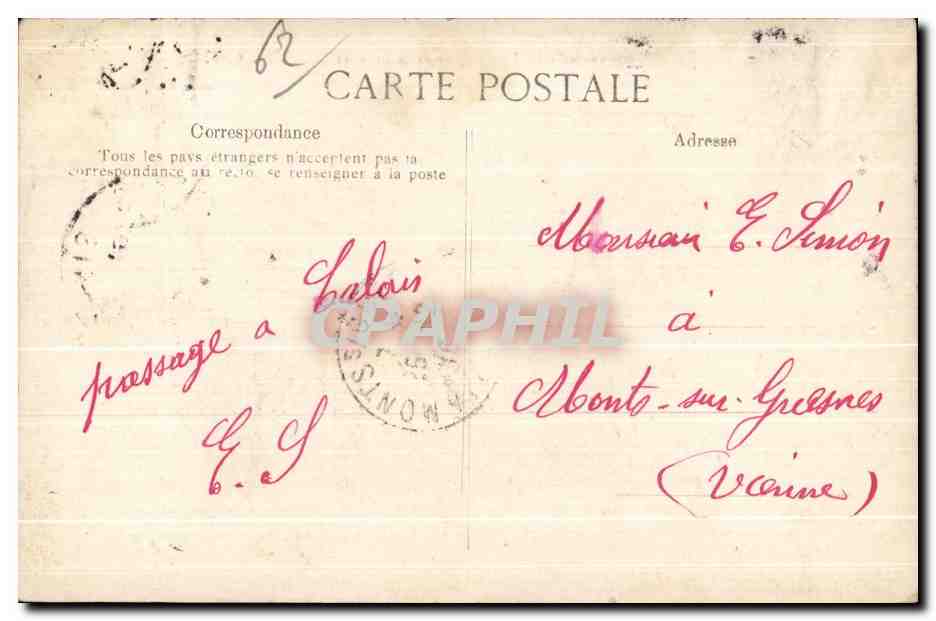 62
CARTE POSTALE
Correspondance
Tous les pays étrangers n'acceptent pas la
correspondance au recto, se renseigner à la poste
Adresse
Monsieur E. Simon
à
Monts-sur-Guesnes
(Vienne)
passage a Calais
E. S
CPAPHIL
MONTS S